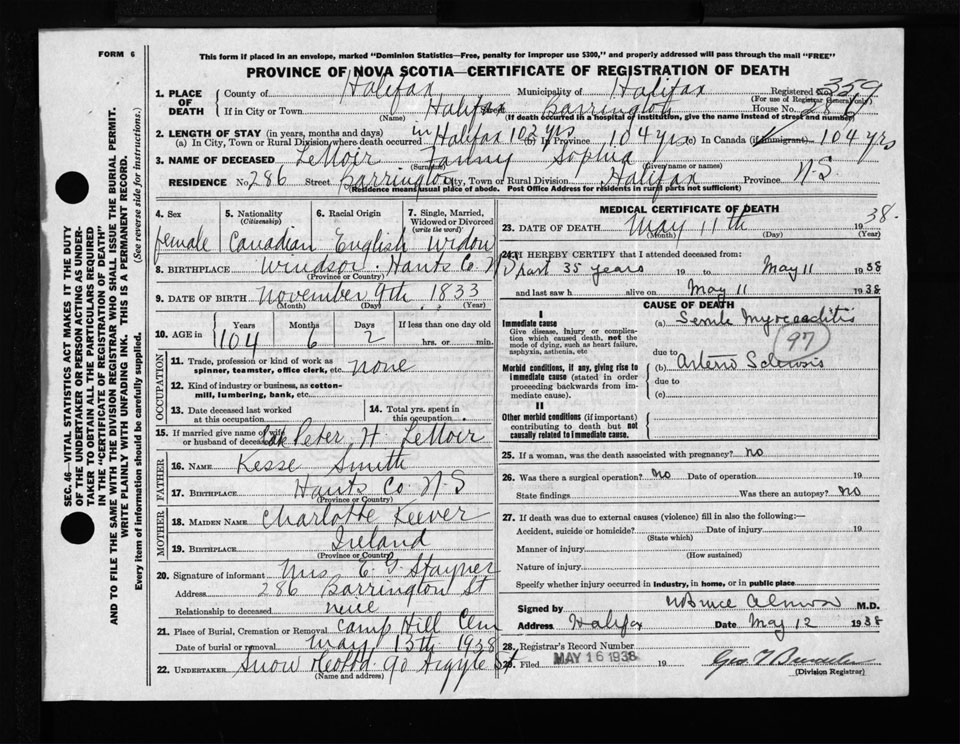 FORM 6
This form if placed in an envelope, marked "Dominion Statistics—Free, penalty for improper use $300," and properly addressed will pass through the mail "FREE"
PROVINCE OF NOVA SCOTIA—CERTIFICATE OF REGISTRATION OF DEATH
1. PLACE OF DEATH
County of Halifax Municipality of Halifax Registered No. 359
(For use of Registrar General only)
If in City or Town Halifax Street Barrington House No. 286
(Name) (If death occurred in a hospital of institution, give the name instead of street and number)
2. LENGTH OF STAY (in years, months and days)
(a) In City, Town or Rural Division where death occurred in Halifax 102 yrs (b) In Province 104 yrs (c) In Canada (if immigrant) 104 yrs
3. NAME OF DECEASED LeNoir Fanny Sophia
(Surname) (Given name or names)
RESIDENCE No. 286 Street Barrington City, Town or Rural Division Halifax Province N-S.
(Residence means usual place of abode. Post Office Address for residents in rural parts not sufficient)
4. Sex
female
5. Nationality
(Citizenship)
Canadian
6. Racial Origin
English
7. Single, Married, Widowed or Divorced
(write the word)
Widow
8. BIRTHPLACE Windsor Hants Co. N S
(Province or Country)
9. DATE OF BIRTH November 9th 1833
(Month) (Day) (Year)
10. AGE in
Years Months Days If less than one day old
104 6 2 hrs. or min.
OCCUPATION
11. Trade, profession or kind of work as spinner, teamster, office clerk, etc. none
12. Kind of industry or business, as cotton-mill, lumbering, bank, etc.
13. Date deceased last worked at this occupation
14. Total yrs. spent in this occupation
15. If married give name of wife or husband of deceased Peter H. LeNoir
FATHER
16. NAME Smith
17. BIRTHPLACE Hants Co N-S
(Province or Country)
MOTHER
18. MAIDEN NAME Charlotte Keever
19. BIRTHPLACE Ireland
(Province or Country)
20. Signature of informant Mrs. E. G. Stayner
Address 286 Barrington St
Relationship to deceased niece
21. Place of Burial, Cremation or Removal Camp Hill Cem
Date of burial or removal May 13th 1938
22. UNDERTAKER Snow 90 Argyle St
(Name and address)
MEDICAL CERTIFICATE OF DEATH
23. DATE OF DEATH May 11th 1938.
(Month) (Day) (Year)
24. I HEREBY CERTIFY that I attended deceased from:
past 35 years 19 to May 11 1938
and last saw h alive on May 11 1938
CAUSE OF DEATH
I
Immediate cause
Give disease, injury or complication which caused death, not the mode of dying, such as heart failure, asphyxia, asthenia, etc
(a) Senile Myocarditis
97
due to
Morbid conditions, if any, giving rise to immediate cause (stated in order proceeding backwards from immediate cause).
(b) Arterio Sclerosis
due to
(c)
II
Other morbid conditions (if important) contributing to death but not causally related to immediate cause.
25. If a woman, was the death associated with pregnancy? no
26. Was there a surgical operation? no Date of operation 19
State findings Was there an autopsy? no
27. If death was due to external causes (violence) fill in also the following:—
Accident, suicide or homicide? Date of injury 19
(State which)
Manner of injury
(How sustained)
Nature of injury
Specify whether injury occurred in industry, in home, or in public place
Signed by Bruce Almon M.D.
Address Halifax Date May 12 1938
28. Registrar's Record Number
29. Filed MAY 16 1938 19
Geo.
(Division Registrar)
SEC. 46—VITAL STATISTICS ACT MAKES IT THE DUTY OF THE UNDERTAKER OR PERSON ACTING AS UNDERTAKER TO OBTAIN ALL THE PARTICULARS REQUIRED IN THE "CERTIFICATE OF REGISTRATION OF DEATH" AND TO FILE THE SAME WITH THE DIVISION REGISTRAR WHO SHALL ISSUE THE BURIAL PERMIT.
WRITE PLAINLY WITH UNFADING INK. THIS IS A PERMANENT RECORD.
Every item of information should be carefully supplied. (See reverse side for instructions.)